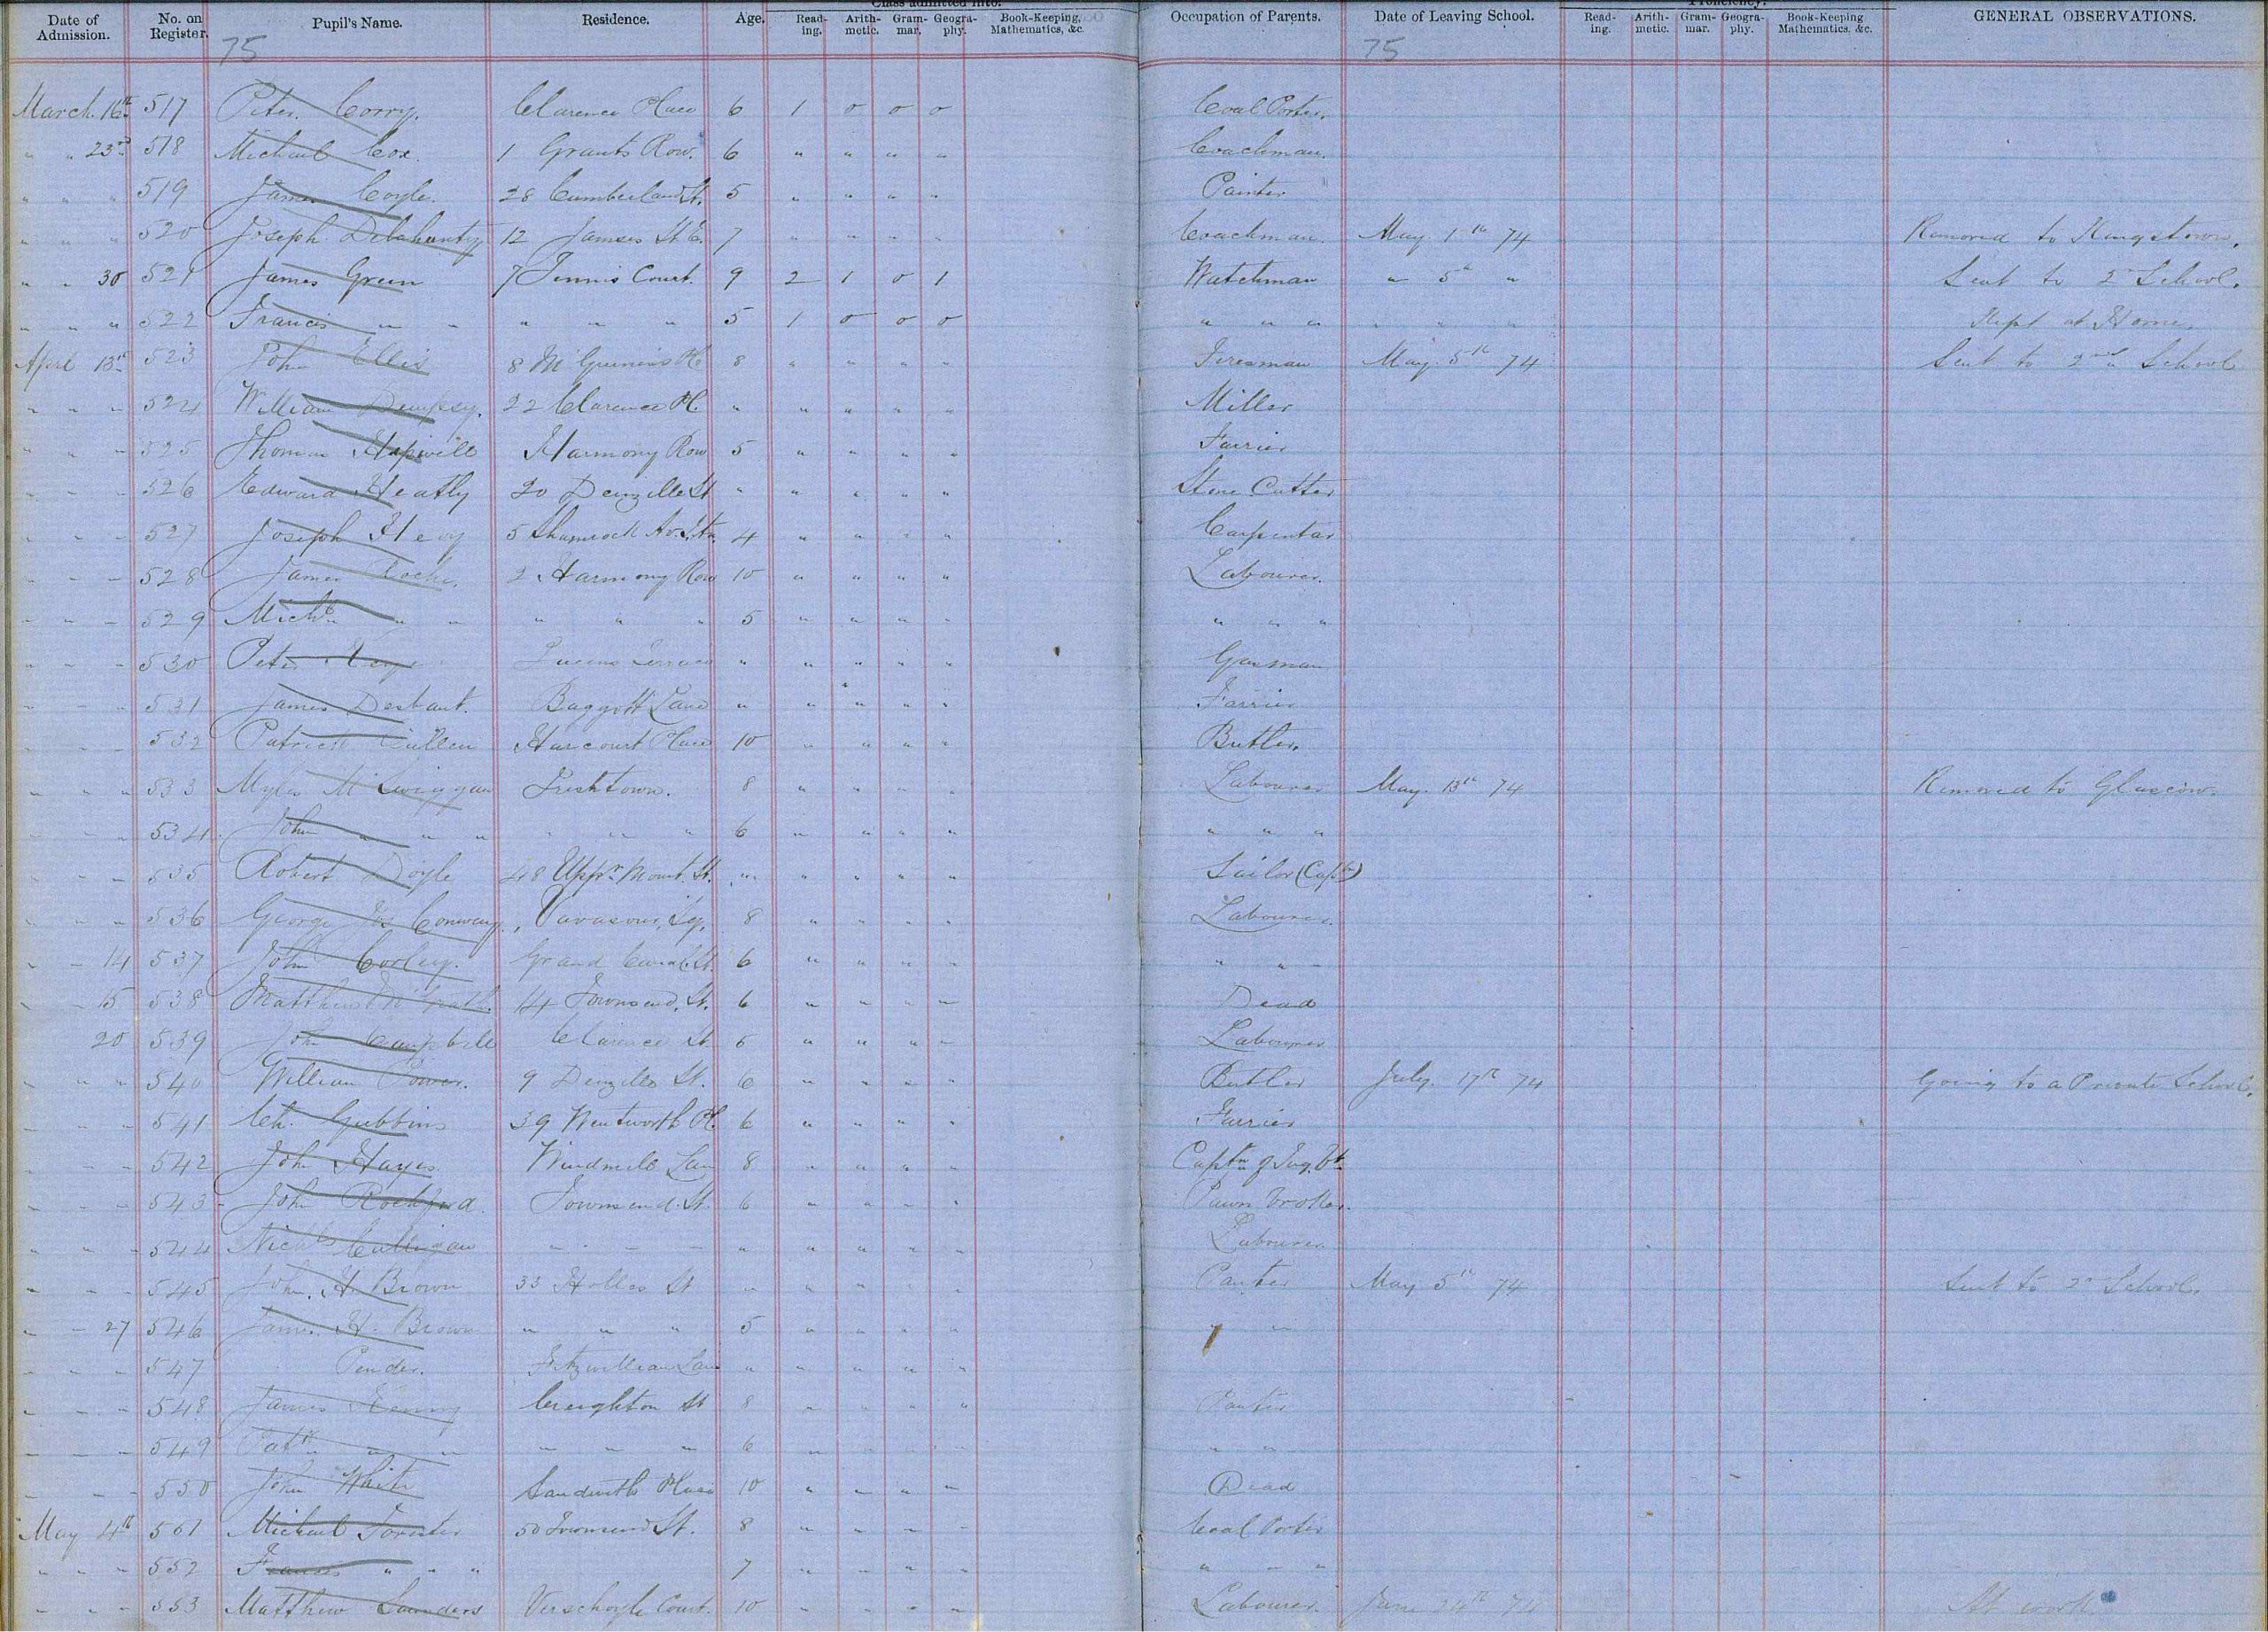 Date of Admission. No. on Register. Pupil's Name. Residence. Age. Class admitted into. Reading. Arithmetic. Grammar. Geography. Book-Keeping, Mathematics, &c. Occupation of Parents. Date of Leaving School. Proficiency. Reading. Arithmetic. Grammar. Geography. Book-Keeping Mathematics, &c. GENERAL OBSERVATIONS.
75 75
March 16th 517 Peter Corry. Clarence Place 6 1 0 0 0 Coal Porter.
" " 23rd 518 Michael Cox. 1 Grants Row. 6 " " " " Coachman.
" " " 519 James Coyle. 28 Cumberland St. 5 " " " " Painter
" " " 520 Joseph Delahunty 12 James St E. 7 " " " " Coachman. May 1th 74 Removed to Kingstown.
" " 30 521 James Green 7 Tennis Court. 9 2 1 0 1 Watchman " 5th " Sent to 2nd School.
" " " 522 Francis " " " " " 5 1 0 0 0 " " " " " " Kept at Home.
April 13th 523 John Ellis 8 Mc Guinens Pl 8 " " " " Fireman May 5th 74 Sent to 2nd School
" " " 524 William Dempsey. 22 Clarence Pl. " " " " " Miller
" " " 525 Thomas Harmony Row 5 " " " " Farrier
" " " 526 Edward Heatly 20 Denzille St " " " " " Stone Cutter
" " " 527 Joseph 5 Shamrock 4 " " " " Carpenter
" " " 528 James Roche. 2 Harmony Row 10 " " " " Labourer.
" " " 529 Michl " " " " " 5 " " " " " " "
" " " 530 Peter Queens Terrace " " " " " Gasman
" " " 531 James Baggott Lane " " " " " Farrier
" " " 532 Patrick Cullen Harcourt Place 10 " " " " Butler.
" " " 533 Myles Mc Swiggan Irishtown. 8 " " " " Labourer May 13th 74 Removed to Glascow.
" " " 534 John " " " " " " 6 " " " " " " "
" " " 535 Robert Doyle 48 Uppr. Mount St. " " " " " Sailor (Captn)
" " " 536 George Jos Conway. Vavasour Sq. 8 " " " " Labourer.
" " 14 537 John Corley. Grand Canal St. 6 " " " " " " "
" " 15 538 Matthew McGrath. 14 Townsend. St. 6 " " " " Dead
20 539 John Campbell Clarence St 5 " " " " Labourer
" " " 540 William Power. 9 Denzille St. 6 " " " " Butler July. 17th 74 Going to a Private School.
" " " 541 Ch. Gubbins 39 Wentworth Pl. 6 " " " " Farrier
" " " 542 John Hayes. Windmill Lane 8 " " " " Captn of Tug Bt.
" " " 543 John Rochford. Townsend. St 6 " " " " Pawn broker.
" " " 544 Nichls Culligan " " " " " " " " " Labourer
" " " 545 John. H. Brown 33 Holles St " " " " " Painter May 5th 74 Sent to 2nd School.
" " 27 546 James. H. Brown " " " 5 " " " " " "
" " " 547 Pender. Fitzwilliam Lane " " " " "
" " " 548 James Kenny Creighton St 8 " " " " Painter
" " " 549 Patk " " " " " " 6 " " " " " "
" " " 550 John White Sandwith Place 10 " " " " Dead
May 4th 561 Michael Forster 50 Townsend St. 8 " " " " Coal Porter
" " " 552 Frances " " " 7 " " " " " " "
" " " 553 Matthew Saunders Verschoyle Court. 10 " " " " Labourer. June 24th 74 At work